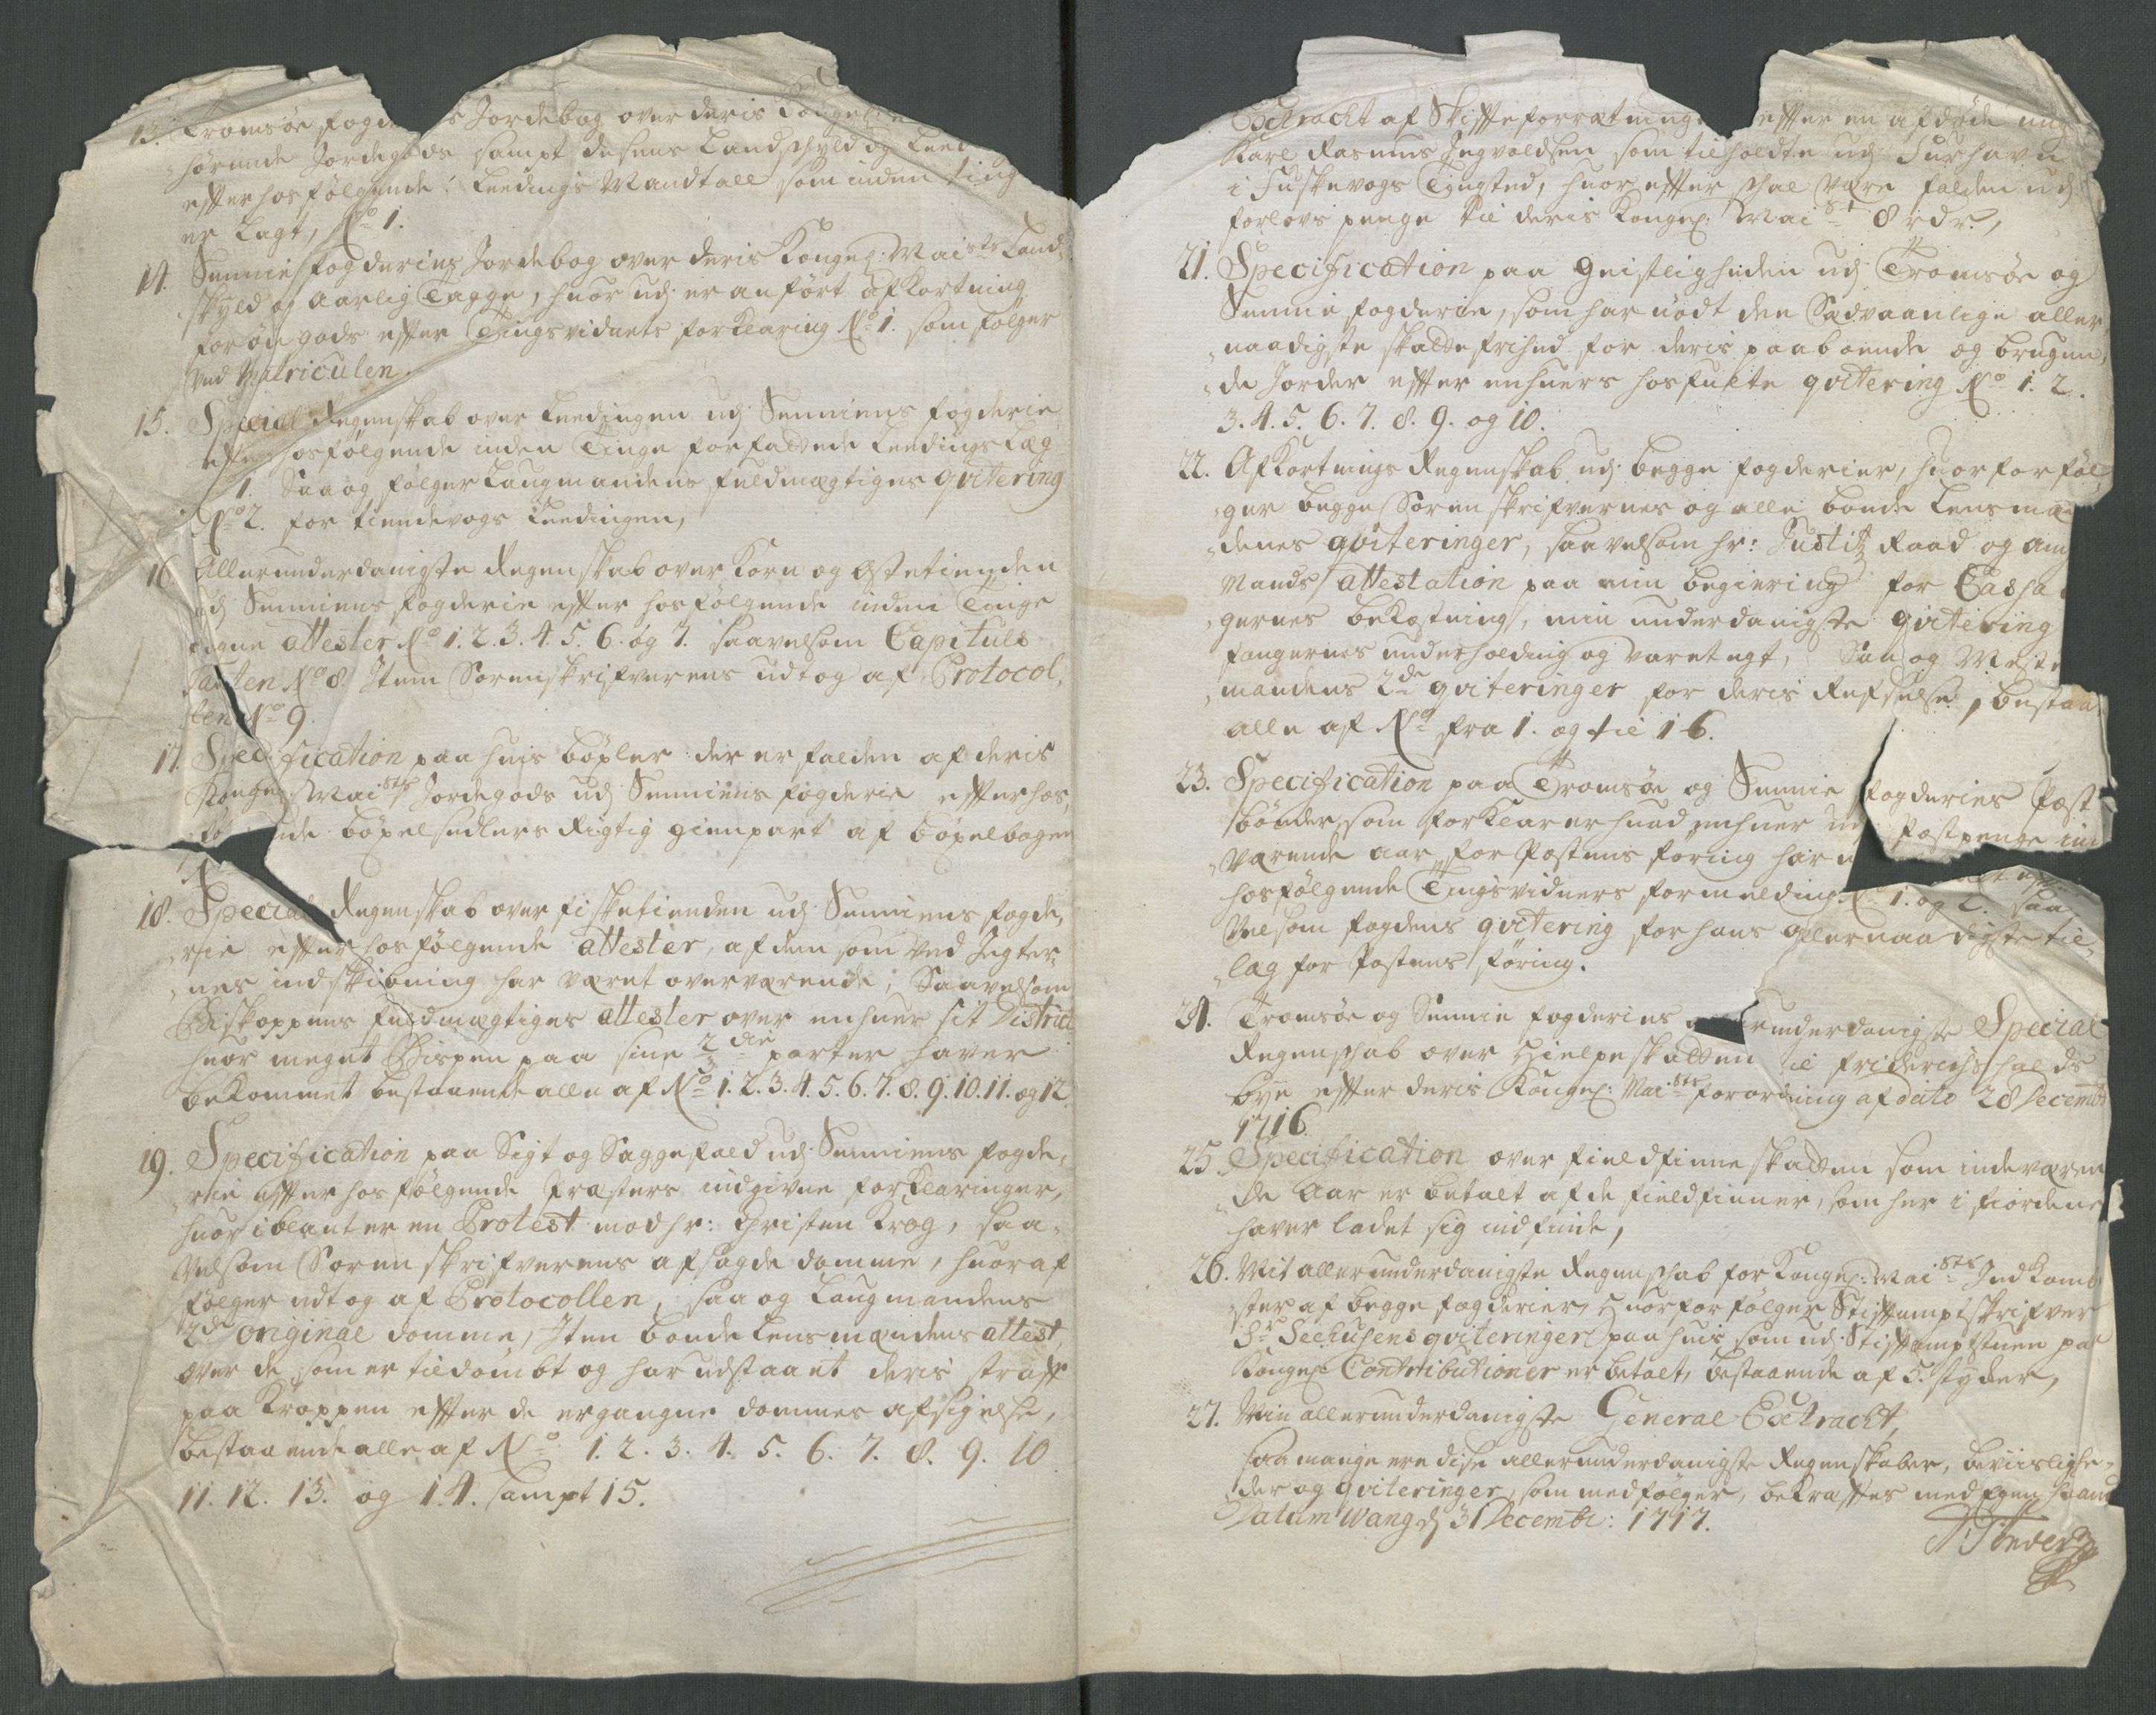 13. Tromsøe fogde s Jordebog over deris Kongel:
hørende Jordegods sampt desens Landschyld og Leed
efter hosfølgende: Leedings Mandtall som inden ting
er Lagt, No 1.
14. Senniefogderies Jordebog over deris Kongel: Maists Land¬
skyld og aarlig Tagge, huor udj er anført afkortning
for øde gods efter Tingsvidnets forklaring No 1. som følger
ved Matriculen.
15. Special Regenskab over Leedingen udj Senniens fogderie
efter hosfølgende inden Tinge forfattede Leedings Læg
1. Saa og følger Laugmandens fuldmægtiges qvitering
No 2. for tiendevogs Leedingen,
16. Allerunderdanigste Regenskab over Korn og Ostetienden
udj Senniens fogderie efter hosfølgende inden Tinge
tagne attester No 1. 2. 3. 4. 5. 6. og 7. saavelsom Capituls
Taxten No 8. Item Sorenskrifverens udtog af Protocol,
len No 9.
17. Specification paa huis bøxler der er falden af deris
Kongel: Maists Jordegods udj Senniens fogderie efter hos,
fø ende bøxelsedlers Rigtig gienpart af bøxelbogen
18. Special Regenskab over fisketienden udj Senniens fogde,
rie efter hosfølgende attester, af dem som ved Jegter,
nes indskibning har været overværende, Saavelsom
Biskoppens fuldmægtiges attester over enhuer sit District
huor meget Bispen paa sine 2/3die parter haver
bekommet bestaaende alle af No 1. 2. 3. 4. 5. 6. 7. 8. 9. 10. 11. og 12.
19. Specification paa Sigt og Saggefald udj Senniens fogde,
rie efter hosfølgende Præsters indgivne forklaringer,
huor iblant er en Protest mod hr: Christen Krog, saa¬
velsom Sorenskrifverens afsagde domme, huoraf
følger udtog af Protocollen, saa og Laugmandens
2de original domme, Item bonde lensmændens attest
over de som er tildømbt og har udstaaet deris straf
paa Kroppen efter de ergangne dommes afsigelse,
bestaaende alle af No 1. 2. 3. 4. 5. 6. 7. 8. 9. 10
11. 12. 13. og 14. sampt 15.
Extracht af Skifteforretning efter en afdøde ung
Karl Rasmus Ingvoldsen som tilholdte udj Turhavn
i Tuskevogs Tingsted, huor efter schal være falden udj
forlovs penge til deris Kongel: Maist 8 rdr.,
21. Specification paa geistligheden udj Tromsøe og
Sennie fogderie, som har nødt den Sædvaanlige aller
naadigste skattefrihed for deris paaboende og brugen,
de Jorder efter enhuers hosfuite qvitering No 1. 2.
3. 4. 5. 6. 7. 8. 9. og 10.
22. Afkortnings Regenskab udj begge fogderier, huorfor føl
ger begge Sorenskrifvernes og alle bonde lensmæ
denes qviteringer, saavelsom hr: Justitz Raad og am
mands attestation paa min begiering for
gernes bekostning, min underdanigste qvitering
fangernes underholding og varetegt, Saa og Meste
mandens 2de qviteringer for deris Refselse, bestaa
alle af No fra 1. og til 16.
23. Specification paa Tromsøe og Sennie fogderies Post
bønder som forklarer huad enhuer ud Postpenge in
værende aar for Postens føring har
hosfølgende Tingsvidners formelding No 1. og 2. saa
velsom fogdens qvitering for hans allernaadigste til¬
lag for Postens føring.
24. Tromsøe og Sennie fogderies erunderdanigste Special
Regenschab over Hielpeskatten til fridericshalds
bye efter deris Kongel: Maists forordning af dato 28 Decemb
1716.
25. Specification over fieldfinneskatten som indeværen
de Aar er betalt af de fieldfinner, som her i fiordene
haver ladet sig indfinde,
26. Mit allerunderdanigste Regenschab for Kongel: Maists Indkom
ster af begge fogderier, Huorfor følger Stiftamptskrifver
Sr Seehusens qviteringer paa huis som udj Stiftamptstuen paa
Kongel: Contributioner er betalt, bestaaende af 5. stycker,
27. Min allerunderdanigste General Extracht,
saa mange ere disse allerunderdanigste Regenskaber, beviislighe¬
der og qviteringer, som medfølger, bekræftes med egen haand
Datum Wang d 31 Decembr: 1717.